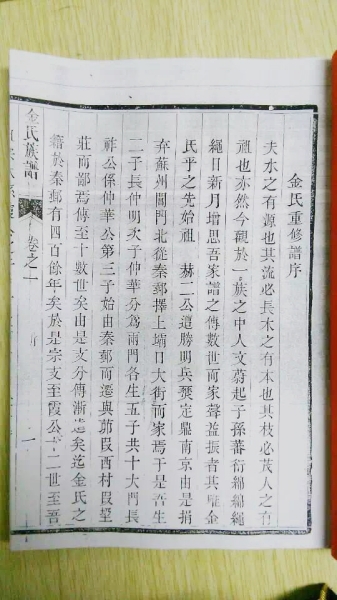 金氏重修譜序
夫水之有源也其流必長木之有本也其枝必茂人之有
祖也亦然今觀於一族之中人文蔚起子孫蕃衍綿綿繩
繩日新月增思吾家譜之傳數世而家聲益振者其唯金
氏乎之先始祖 赫二公遭勝明兵燹定鼎南京由是捐
弃蘇州閶門北從秦郵擇上壩日大街而家焉于是吾生
二子長仲明次子仲華分為兩門各生五子共十大門長
祚公係仲華公第三子始由秦郵而遷與茆段西村段堡
莊而鄙焉傳至十數世矣由是支分傳漸遠矣迄金氏之
籍於秦郵有四百餘年矣於是宗支至霞公十二世至吾
金氏族譜
卷之一
序
一